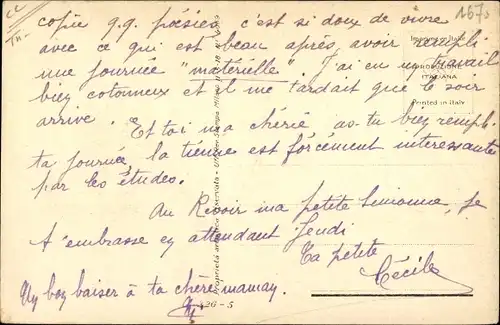 copie q.q. poésies, c'est si doux de vivre
avec ce qui est beau après avoir rempli
une journée "matérielle" J'ai eu un travail
biey cotonneux et il me tardait que le soir
arrive.
Et toi ma chérie as-tu biey rempli
ta journée, la tienne est forcément intéressante
par les études.
Au Revoir ma petite Simonne, je
t'embrasse ey attendant Jeudi
Ta petite
Cécile
Uy boy baiser à ta chère mamay.
1675
Imprimé en Italie
PRODUZIONE
ITALIANA
Printed in Italy
Proprietà artistica riservata
326-5